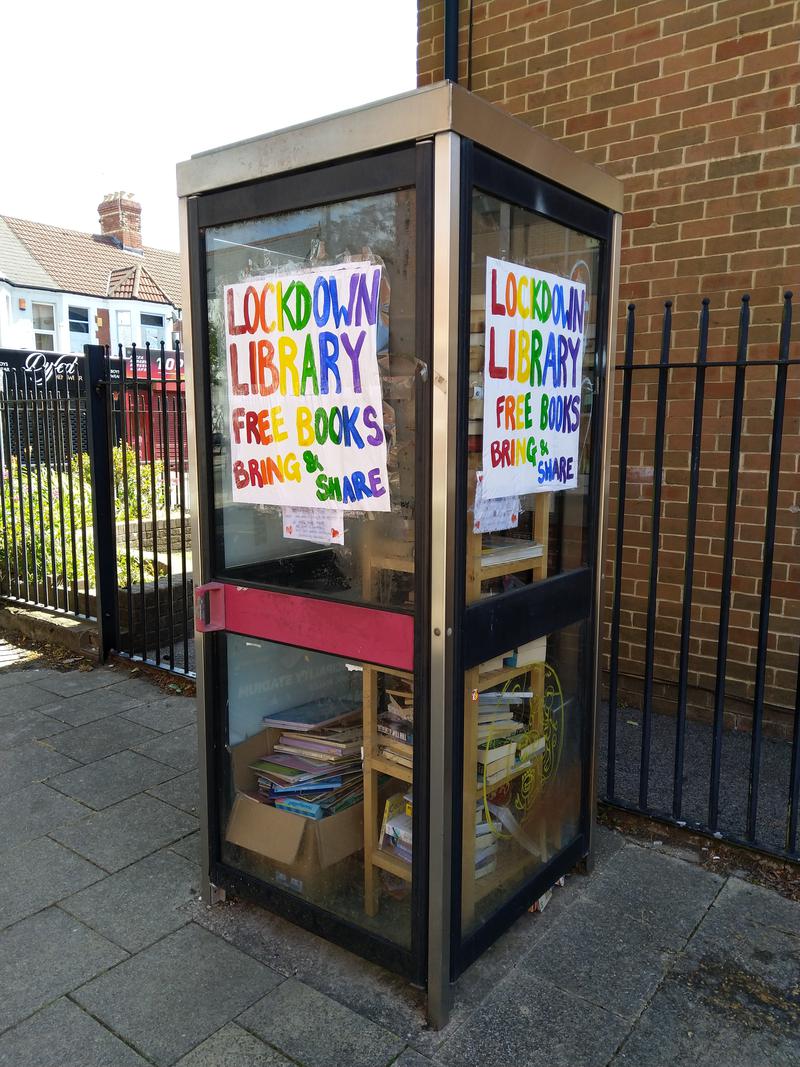 LOCKDOWN
LIBRARY
FREE BOOKS
BRING &
SHARE
LOCKDOWN
LIBRARY
FREE BOOKS
BRING &
SHARE